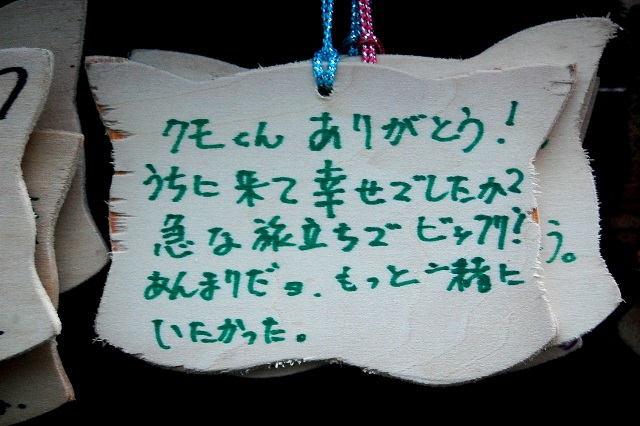 クモくん ありがとう!
うちに来て幸せでしたか?
急な旅立ちでビックリ!
あんまりだョ.もっと一緒に
いたかった。
う。